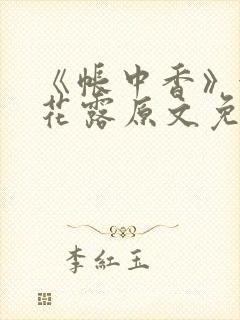 《帐中香》
花露原文免
李紅玉